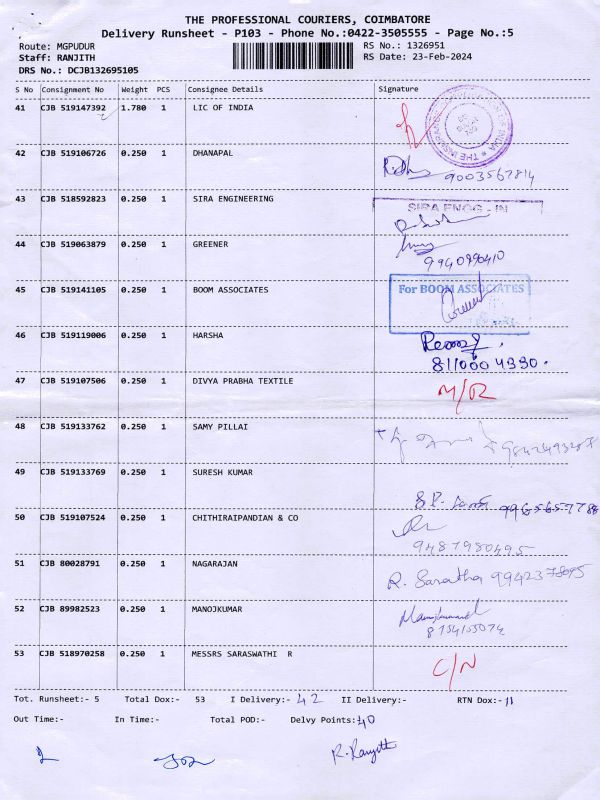 THE PROFESSIONAL COURIERS, COIMBATORE
Delivery Runsheet - P103 - Phone No.:0422-3505555 - Page No.:5
Route: MGPUDUR RS No.: 1326951
Staff: RANJITH RS Date: 23-Feb-2024
DRS No.: DCJB132695105
S No Consignment No Weight PCS Consignee Details Signature
41 CJB 519147392 1.780 1 LIC OF INDIA
42 CJB 519106726 0.250 1 DHANAPAL
9003567814
43 CJB 518592823 0.250 1 SIRA ENGINEERING
SIRA ENGG - IN
44 CJB 519063879 0.250 1 GREENER
9940990410
45 CJB 519141105 0.250 1 BOOM ASSOCIATES For BOOM ASSOCIATES
46 CJB 519119006 0.250 1 HARSHA
8110004330.
47 CJB 519107506 0.250 1 DIVYA PRABHA TEXTILE M/R
48 CJB 519133762 0.250 1 SAMY PILLAI
49 CJB 519133769 0.250 1 SURESH KUMAR
50 CJB 519107524 0.250 1 CHITHIRAIPANDIAN & CO
9487980495
51 CJB 80028791 0.250 1 NAGARAJAN
R. Saratha
52 CJB 89982523 0.250 1 MANOJKUMAR
53 CJB 518970258 0.250 1 MESSRS SARASWATHI R C/N
Tot. Runsheet:- 5 Total Dox:- 53 I Delivery:- 42 II Delivery:- RTN Dox:- 11
Out Time:- In Time:- Total POD:- Delvy Points:40
R. Ranjith